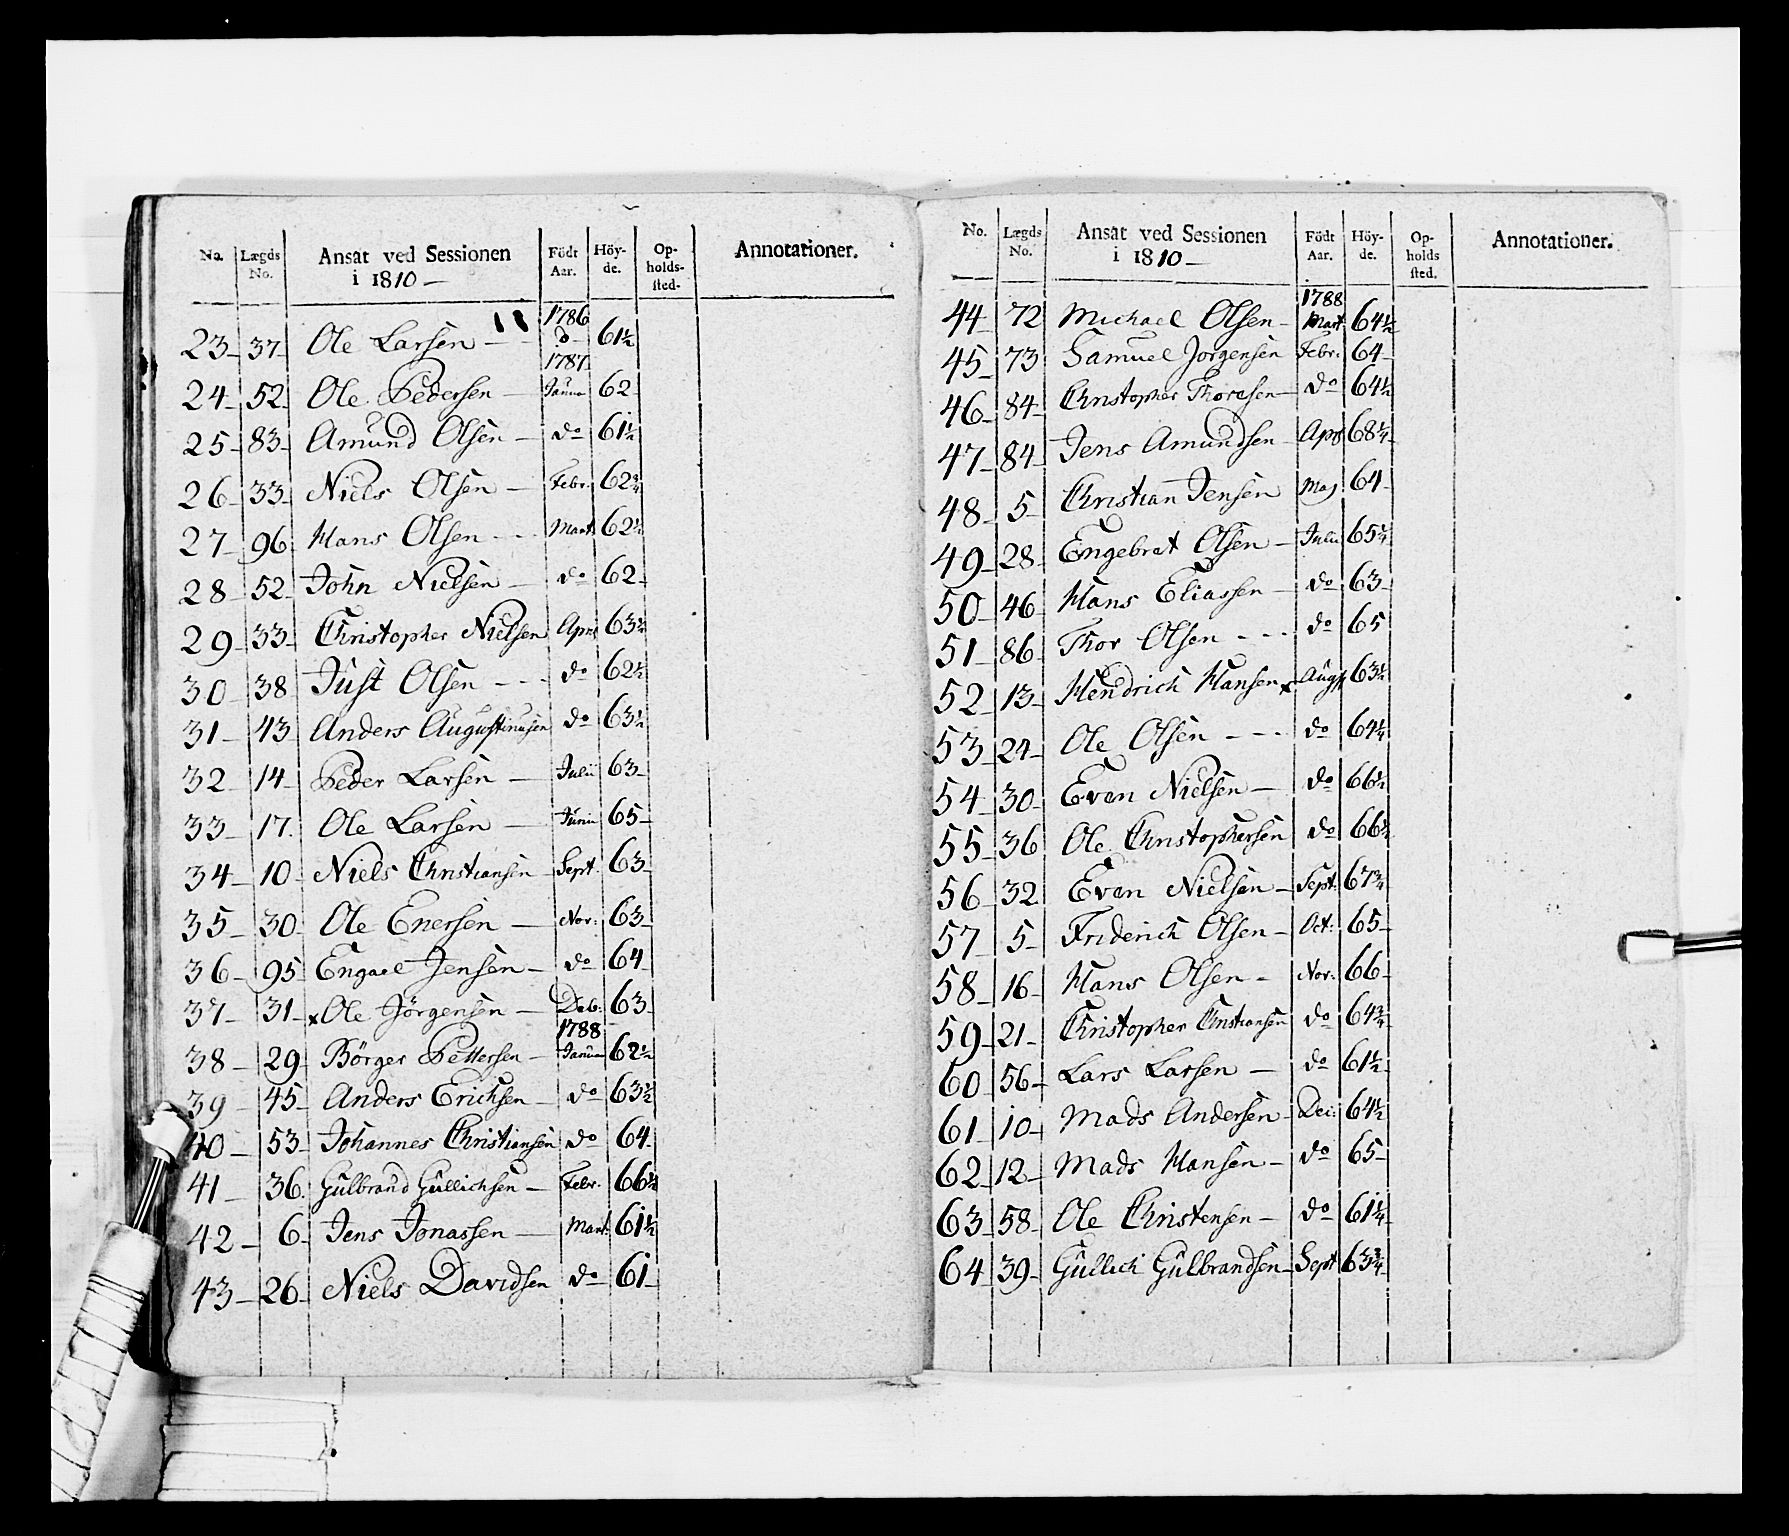 No. Lægds No. Ansat ved Sessionen i 1810 — Födt Aar. Höy-de. Op-holds-sted. Annotationer.
1786
23 – 37 – Ole Larsen — do 61½
1787
24 – 52 – Ole Pedersen — Janua 62 –
25 – 83 – Amund Olsen – do 61½
26 – 33 – Niels Olsen — Febr: 62¾
27 – 96 Hans Olsen - - - Mart 62½
28 – 52 – John Nielsen — do 62 –
29 – 33 – Christopher Nielsen April 63½
30 – 38 Just Olsen - - - do 62½
31 – 43 – Anders Augustinusen do 63½
32 – 14 – Peder Larsen — Julii 63 –
33 – 17. Ole Larsen — Junii 65 –
34 – 10 – Niels Christiansen – Sept. 63 –
35 – 30 – Ole Enersen — Nov: 63 –
36 – 95 Engael Jensen – do 64 –
37 – 31 – x Ole Jörgensen – Deb: 63 –
1788
38 – 29 – Börger Pettersen – Janua 62½
39 – 45 – Anders Erichsen – do 63½
40 – 53 – Johannes Christiansen do 64 –
41 – 36. Gulbrand Gullichsen – Febr. 66½
42 – 6 – Jens Jonassen — Mart: 61½
43 – 26 – Niels Davidsen do 61 –
No. Lægds No. Ansat ved Sessionen i 1810 — Födt Aar. Höy-de. Op-holds sted. Annotationer.
1788
44 – 72 Michael Olsen – Mart 64½
45 – 73 Samuel Jorgensen Febr: 64 –
46 – 84 – Christopher Thoresen – do 64½
47 – 84 – Jens Amundsen – Apr 68¼
48 – 5 – Christian Jensen Maj 64 –
49 – 28 – Engebret Olsen – Julii 65¼
50 – 46 Hans Eliassen – do 63 –
51 – 86 – Thor Olsen - - - do 65
52 – 13 – Hendrich Hansen x Augt 63½
53 – 24 – Ole Olsen - - - do 64¼
54 – 30 – Even Nielsen — do 66½
55 – 36 Ole Christophersen do 66½
56 – 32 Even Nielsen – Sept. 67¾
57 – 5 – Friderich Olsen – Oct: 65 –
58 – 16 – Hans Olsen – Nov: 66 –
59 – 21 – Christopher Christiansen do 64¾
60 – 56 – Lars Larsen — do 61½
61 – 10 – Mads Andersen – Dec: 64½
62 – 12 – Mads Hansen – do 65 –
63 – 58 – Ole Christensen – do 61¼
64 – 39 – Gullich Gulbrandsen – Sept 63¾